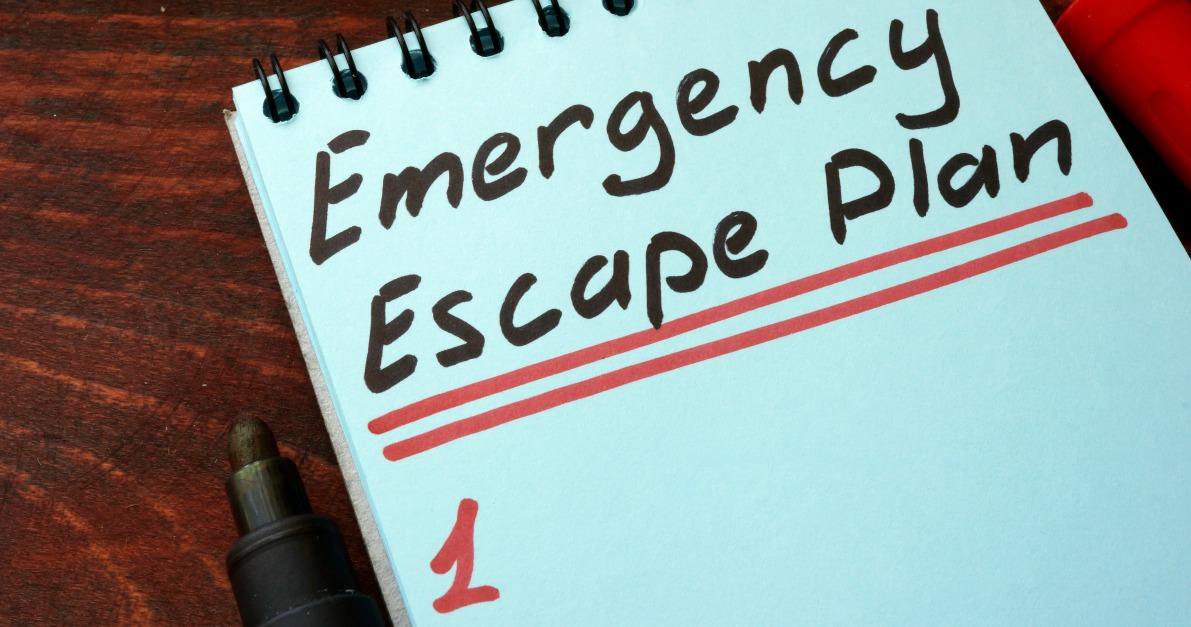 Emergency
Escape Plan
1